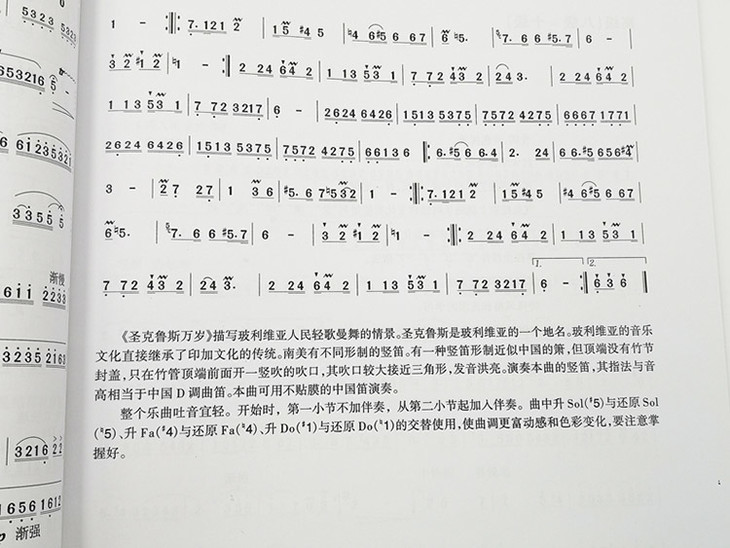 1 - 7. 121 2 1 5 ♯4 5 ♮4 6 ♯5 6 6 7 6 ♮5. 7. 6 6 ♯5.7 6 -
3 2 ♯1 2 ♮1 - 2 2 4 6 4 2 1 1 3 5 3 1 7 7 2 4 3 2 2 4 3. 2 2 4 6 4 2
1 1 3 5 3 1 7 7 2 3 2 1 7 6 - 2624 6426 1513 5375 7572 4275 6667 1771
2624 6426 1513 5375 7572 4275 6 6 1 3 6 6. ♯5 6 6.4 2. 2 4 6 6.♯5 6 5 6 ♯4
3 - 2 7 2 7 1 3 6 ♯5. 6 7 ♮5 3 2 1 - 7. 121 2 1 5 ♯4 5 ♯4 6 ♯5 6 6 7
6 ♮5. 7. 6 6 ♯5.7 6 - 3 2 ♯1 2 ♮1 - 2 2 4 6 4 2 1 1 3 5 3 1
7 7 2 4 3 2 2 4 3. 2 2 4 6 4 2 1 1 3 5 3 1 7 7 2 3 2 1 7 1. 6 - 2. 6 3 6
渐慢
渐强
《圣克鲁斯万岁》描写玻利维亚人民轻歌曼舞的情景。圣克鲁斯是玻利维亚的一个地名。玻利维亚的音乐
文化直接继承了印加文化的传统。南美有不同形制的竖笛。有一种竖笛形制近似中国的箫,但顶端没有竹节
封盖,只在竹管顶端前面开一竖吹的吹口,其吹口较大接近三角形,发音洪亮。演奏本曲的竖笛,其指法与音
高相当于中国 D 调曲笛。本曲可用不贴膜的中国笛演奏。
整个乐曲吐音宜轻。开始时，第一小节不加伴奏，从第二小节起加人伴奏。曲中升 Sol(♯5)与还原 Sol
(♮5)、升 Fa(♯4)与还原 Fa(♮4)、升 Do(♯1)与还原 Do(♮1)的交替使用,使曲调更富动感和色彩变化,要注意掌
握好。